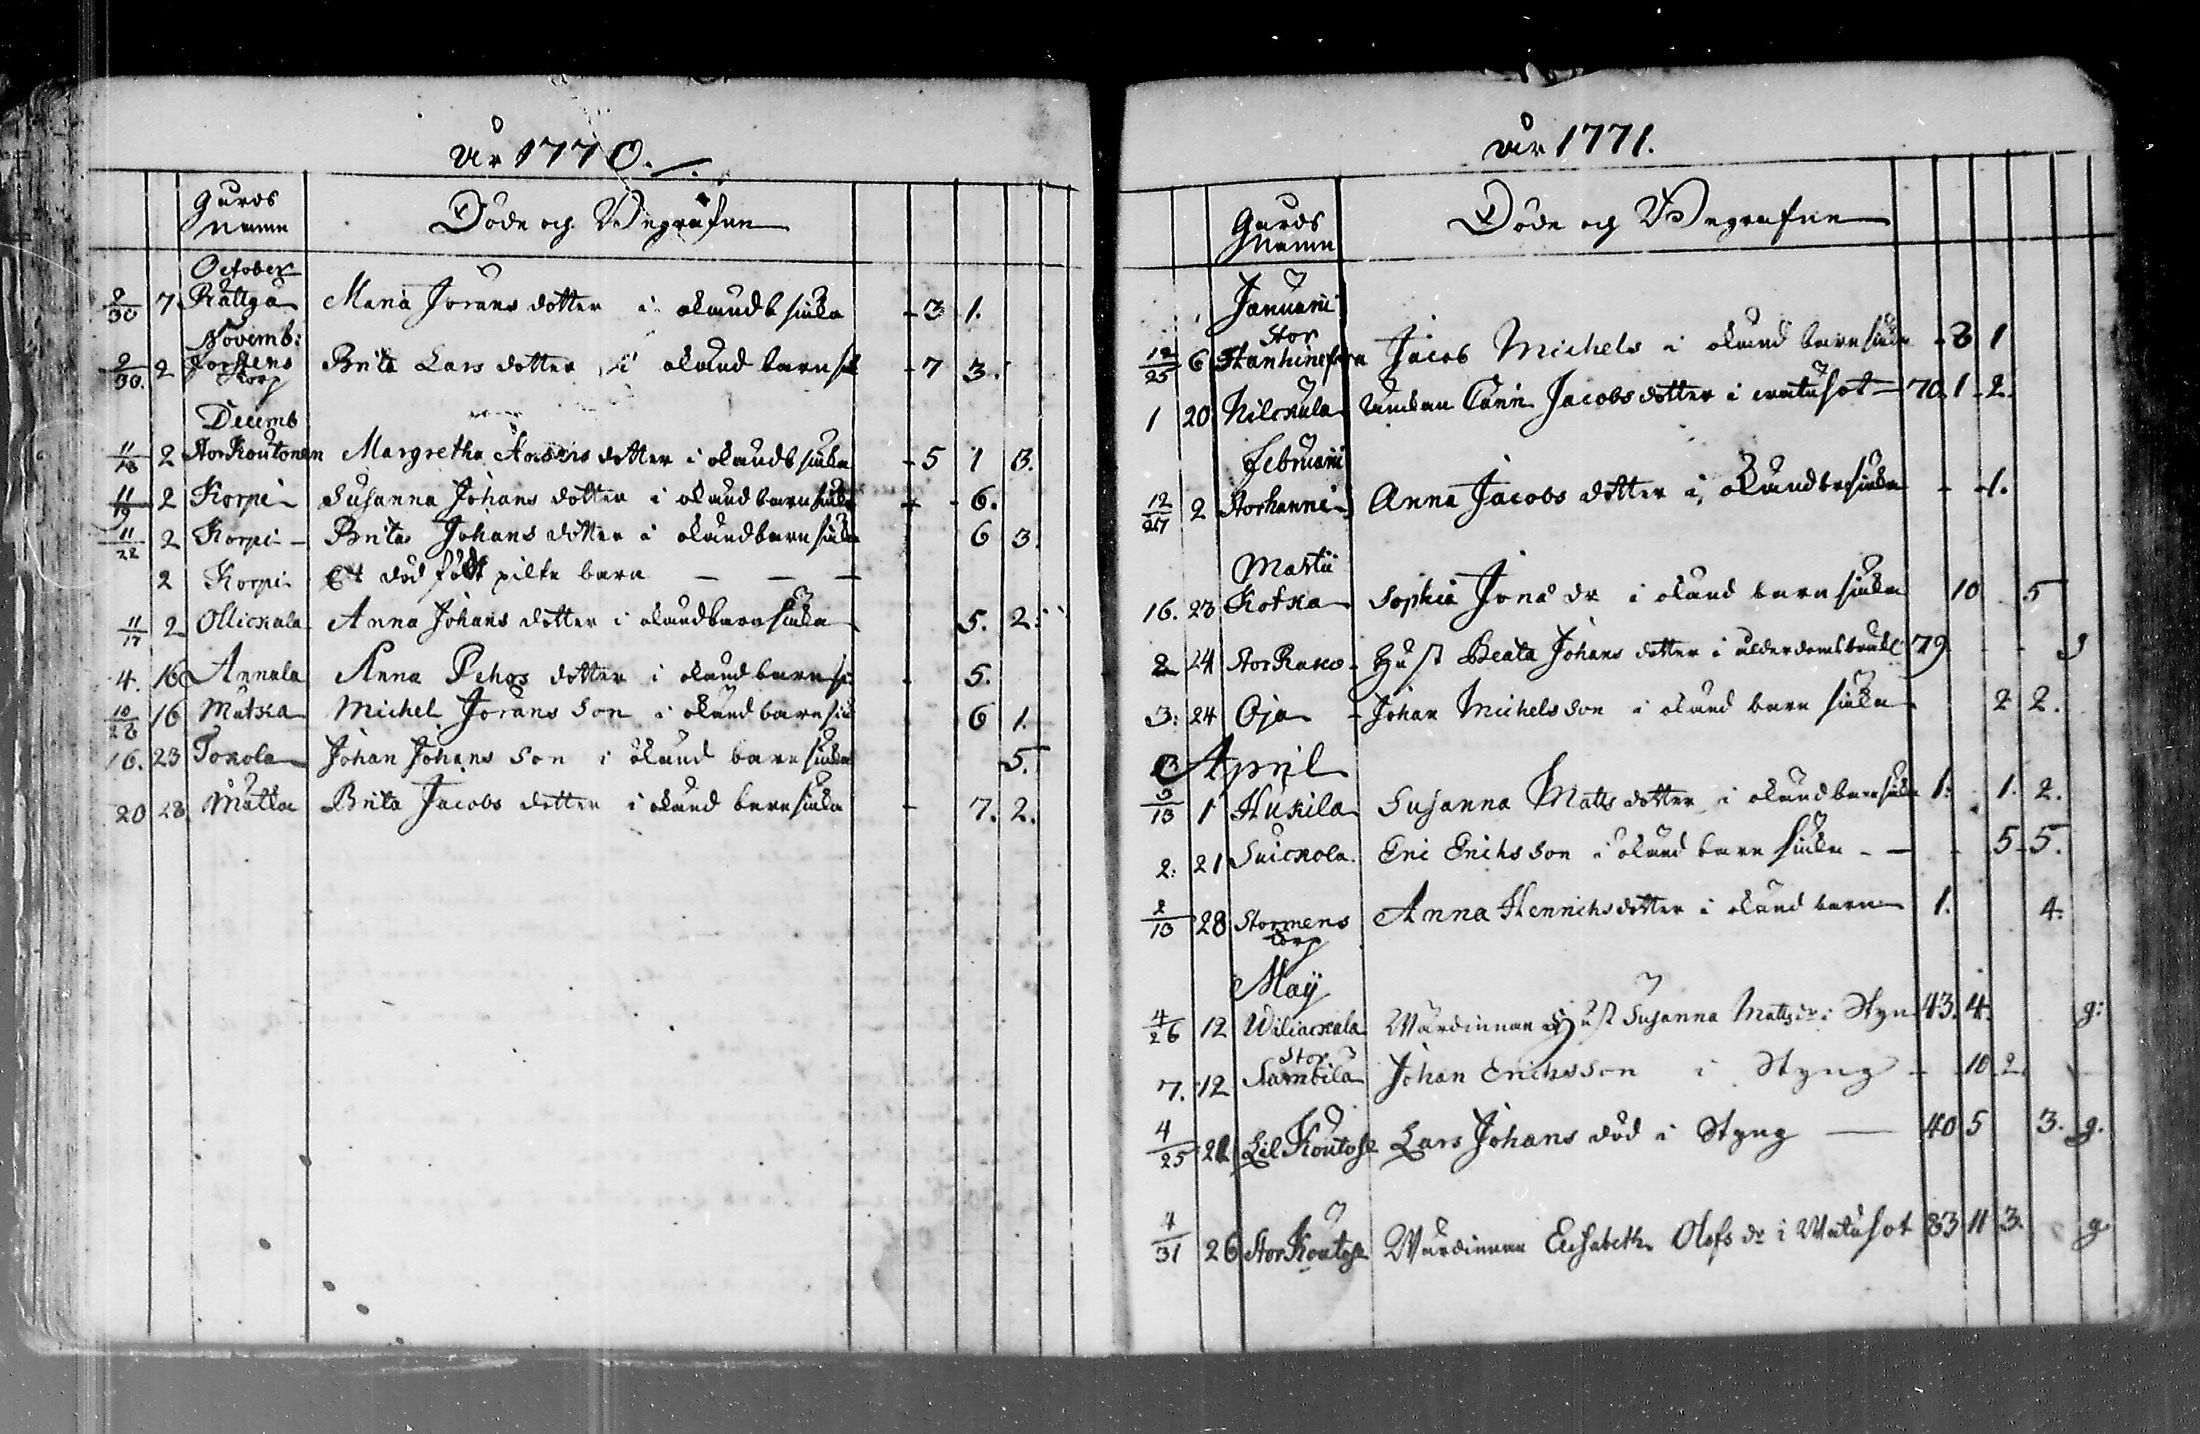 År 1770.
Gårds
Namn
Döde och Begrafne
October
2/30 7 Rättga Maria Jörans dotter i okändt siuka - 3 1.
Novemb:
2/30. 2 Jorstens Brita Lars dotter i okänd barnsi - 7 3.
Korp
Decemb
11/18 2 StorKoutonen Margretha Anders dotter i okändt siuka - 5 1 3.
11/19 2 Korpi Susanna Johans dotter i okänd barnsiuka - 6.
11/22 2 Korpi - Brita Johans dotter i okänd barnsiuka 6 3.
2 Korpi Ett död född pilte barn - - -
11/17 2 Ollickala Anna Johans dotter i okänd barnsiuka 5. 2:
4. 16 Annala Anna Pehrs dotter i okänd barnsi - 5.
10/28 16 Matska Michel Jörans Son i okänd barnsiu - 6 1.
16. 23 Tokola Johan Johans Son i okänd barnsiuka 5.
20 28 Matka Brita Jacobs dotter i okänd barnsiuka - 7. 2.
År 1771.
Gårds
Namn
Döde och Begrafne
Januarii
Stor
12/25 6 Hanhinefva Jacob Michels i okänd barnsiuka - 3 1
1 20 Nilckula Enckan Carin Jacobsdotter i watusot - 70. 1 2.
Februarii
12/27 2 Storhanni Anna Jacobs dotter i okänd brsiuka - - 1.
Martii
16. 23 Kotka Sophia Jonæ dr i okänd barnsiuka 10 5
2 24 StorRasko - Hust Beata Johans dotter i ålderdoms bräckl 79 - - g
3: 24 Oja - Johan Michels son i okänd barn siuka 2 2.
April
3/13 1 Hukila Susanna Matts dotter i okänd barnsiuka 1. 1. 2.
2: 21 Suickola. Eric Erichs Son i okänd barn siuka - - - 5 5.
2/13 28 Stormens Anna Henrichsdotter i okänd barn 1. 4.
torp
May
4/26 12 Wiliackala Wärdinnan Hust Susanna Matts dr i Styn 43. 4. g:
Stor
7. 12 Sambila Johan Erichsson i Styng - 10 2.
4/25 21 Lil Koutosk Lars Johans död i Styng - 40 5 3. g.
4/31 26 StorKoutosk Wärdinnan Elisabeth Olofs dr i Watusot 83 11 3. g